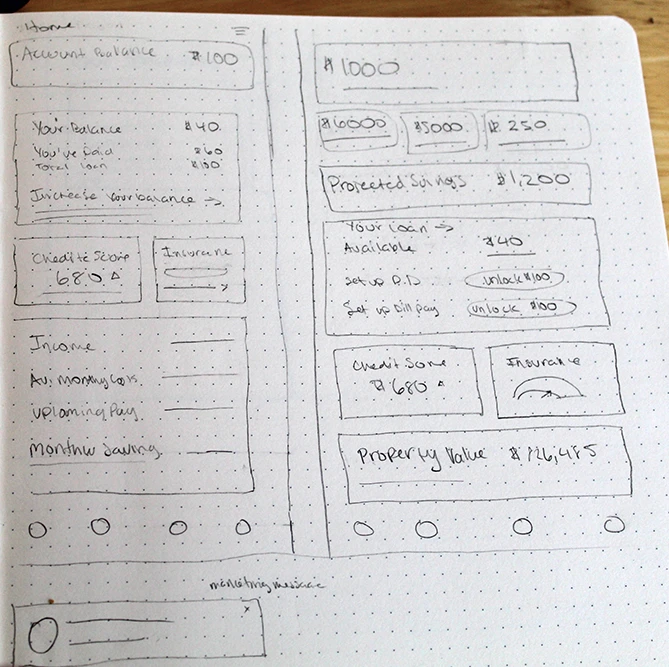 Home
Account Balance $100
Your Balance $40
You've Paid $60
Total Loan $100
Increase your balance →
Credit Score
680 △
Insurance
Income
Av. Monthly Costs
Upcoming Pay
Monthly Saving
$1000
$6000
$5000
$250
Projected Savings $1,200
Your Loan →
Available $40
Set up D.D unlock $100
Set up Bill pay unlock $100
Credit Score
$680 △
Insurance
Property Value $726,485
marketing message
x